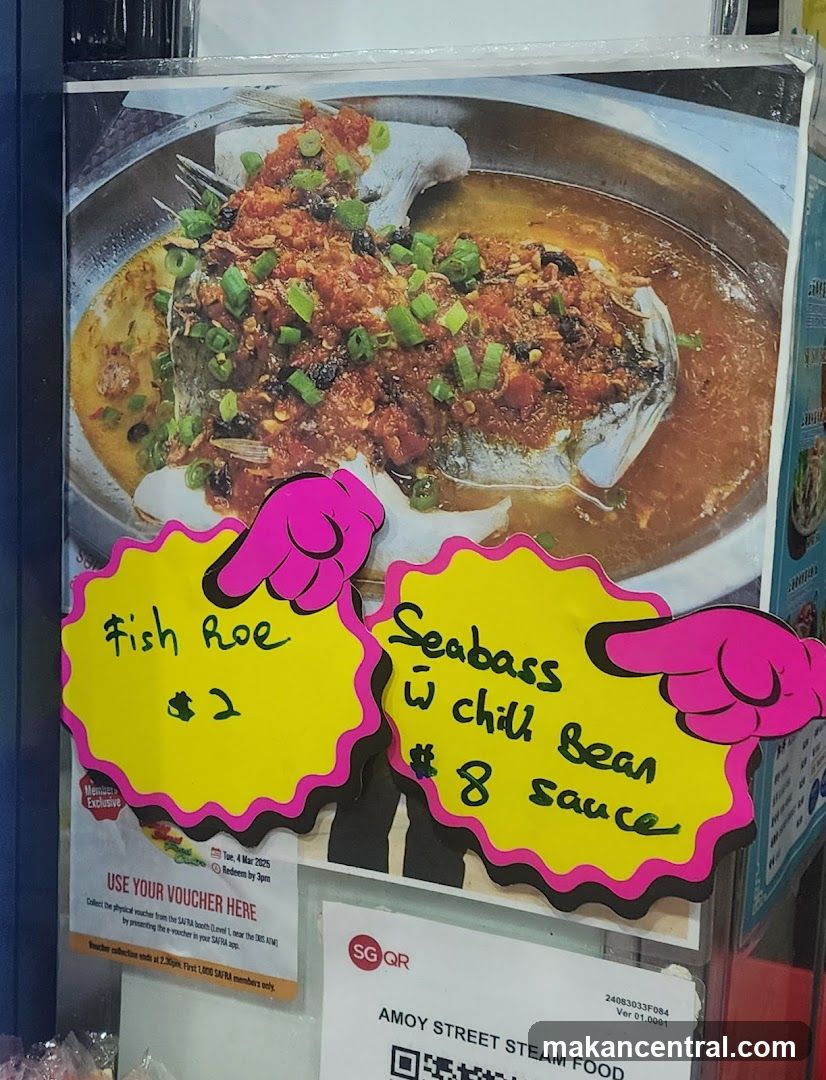 Fish Roe
$2
Seabass
w̄ chilli Bean
$8 sauce
Members
Exclusive
Tue, 4 Mar 2025
Redeem by 3pm
USE YOUR VOUCHER HERE
Collect the physical voucher from the SAFRA booth (Level 1, near the DBS ATM)
by presenting the e-voucher in your SAFRA app.
Voucher collection ends at 2.30pm. First 1,000 SAFRA members only.
SG QR
24083033F084
Ver 01.0001
AMOY STREET STEAM FOOD
makancentral.com